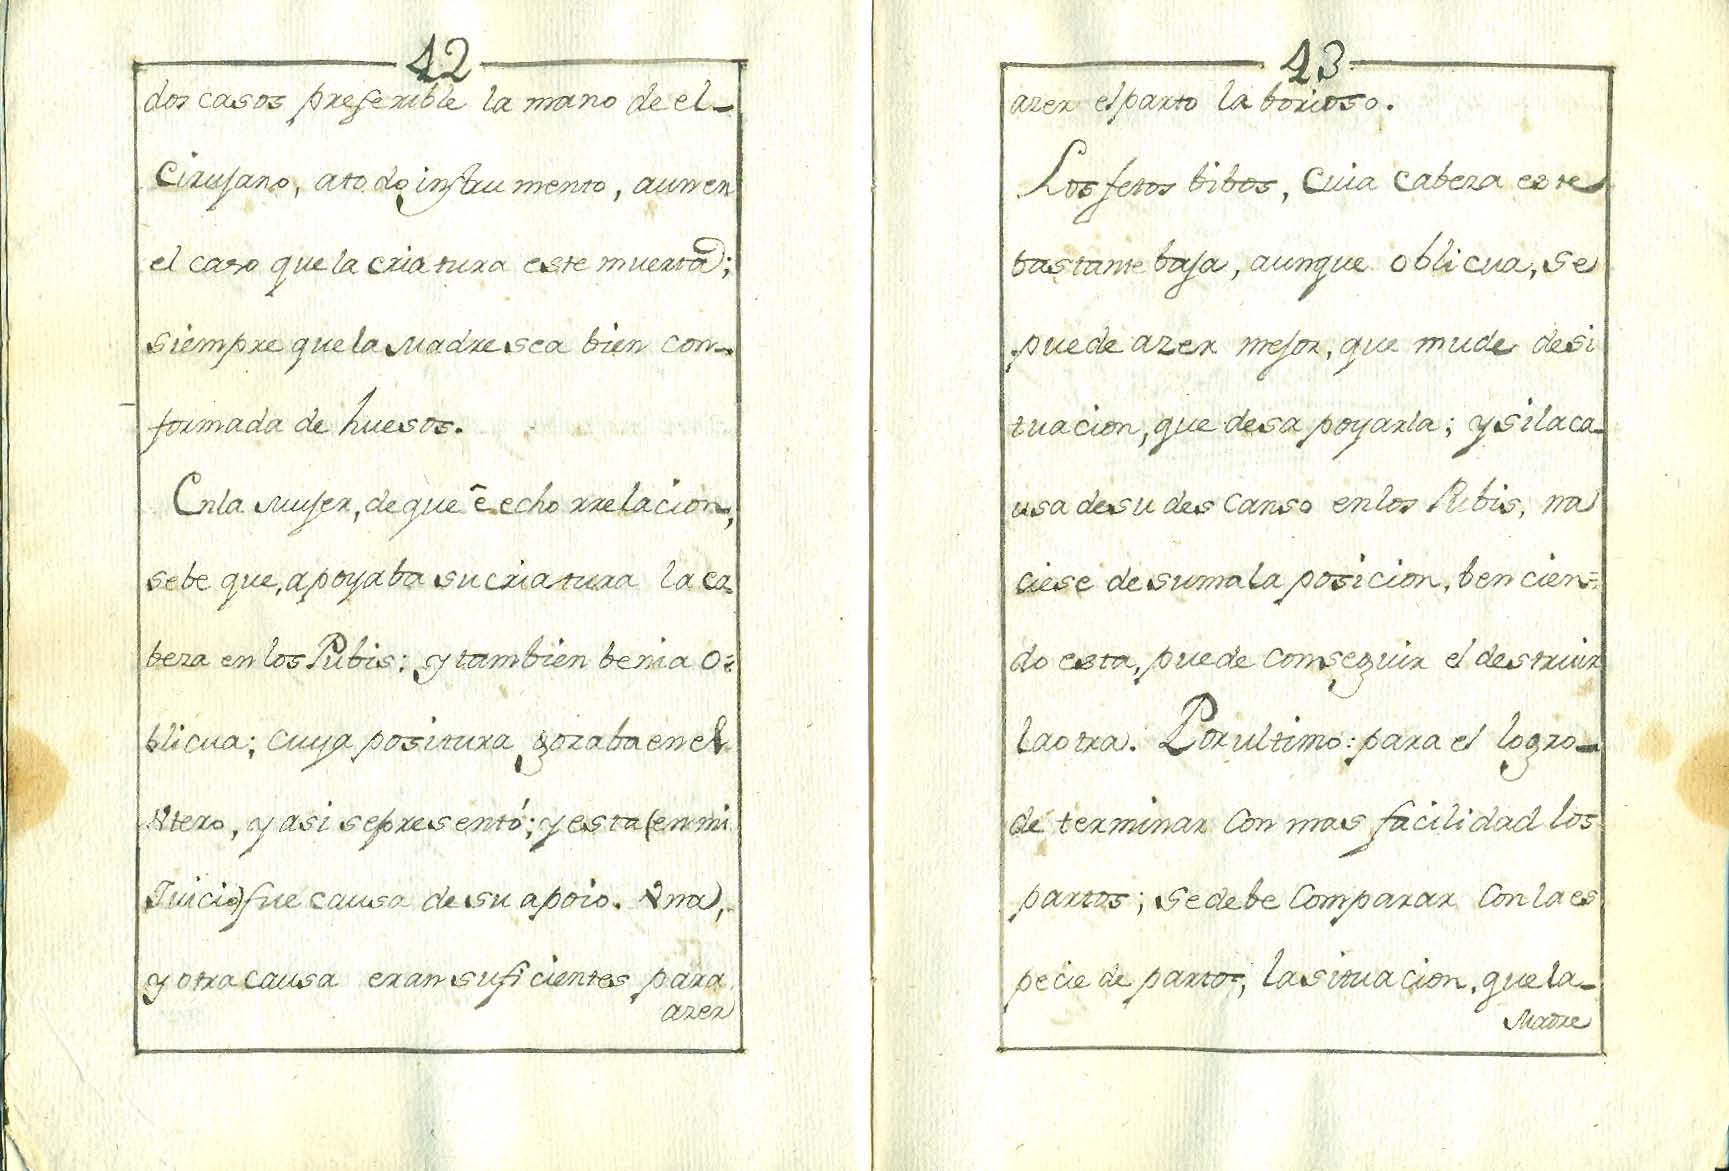 42
dos casos preferible la mano de el-
Cirujano, a todo instrumento, aun en
el caso que la criatura este muerta;
siempre que la Madre sea bien con-
formada de huesos.
En la Mujer, de que ê echo rrelacion,
se be que, apoyaba su criatura la ca-
beza en los Pubis; y tambien benia o=
blicua; cuya positura gozaba en el
Utero, y asi se presentó; y esta (en mi
Juicio) fue causa de su apoio. Una,
y otra causa eran suficientes para
azer
43
azer el parto laborioso.
Los fetos bibos, cuia cabeza este
bastante baja, aunque oblicua, se
puede azer mejor, que mude de si
tuacion, que desapoyarla; y si la ca-
usa de su descanso en los Pubis, na
ciese de su mala posicion, bencien=
do esta, puede comseguir el destruir
la otra. Por ultimo: para el logro-
de terminar con mas facilidad los
partos; se debe comparar con la es
pecie de partos, la situacion, que la-
Madre